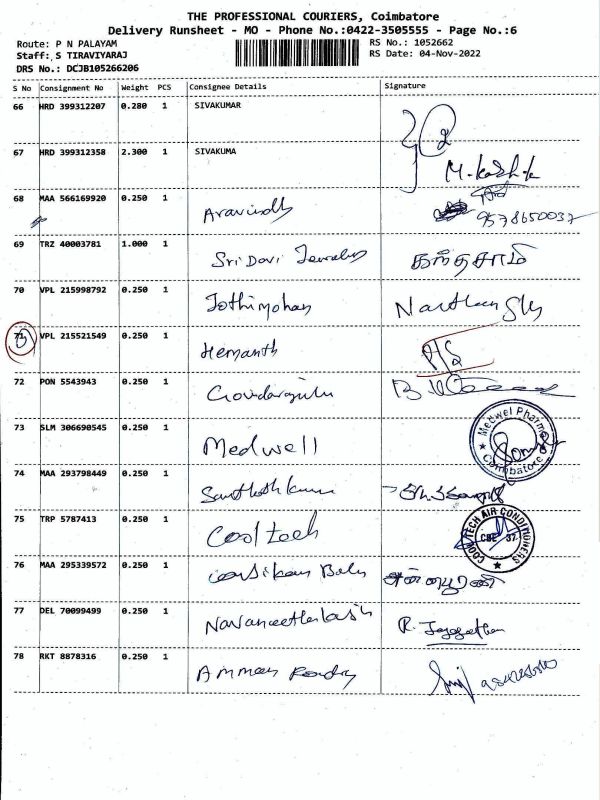 THE PROFESSIONAL COURIERS, Coimbatore
Delivery Runsheet - MO - Phone No.:0422-3505555 - Page No.:6
Route: P N PALAYAM
Staff: S TIRAVIYARAJ
DRS No.: DCJB105266206
RS No.: 1052662
RS Date: 04-Nov-2022
S No Consignment No Weight PCS Consignee Details Signature
66 HRD 399312207 0.280 1 SIVAKUMAR
67 HRD 399312358 2.300 1 SIVAKUMA
68 MAA 566169920 0.250 1 Aravindh 9578650037
69 TRZ 40003781 1.000 1 Sri Devi Jewelers கந்தசாமி
70 VPL 215998792 0.250 1 Jothimohan
71 VPL 215521549 0.250 1 Hemanth
72 PON 5543943 0.250 1 Govdarajulu
73 SLM 306690545 0.250 1 Medwell Medwel Pharma Coimbatore
74 MAA 293798449 0.250 1 Santhosh kumar
75 TRP 5787413 0.250 1 Cool tech COOL TECH AIR CONDITIONERS CBE 37
76 MAA 295339572 0.250 1 அன்னபூரணி
77 DEL 70099499 0.250 1 Navaneethakash R.
78 RKT 8878316 0.250 1 Amman